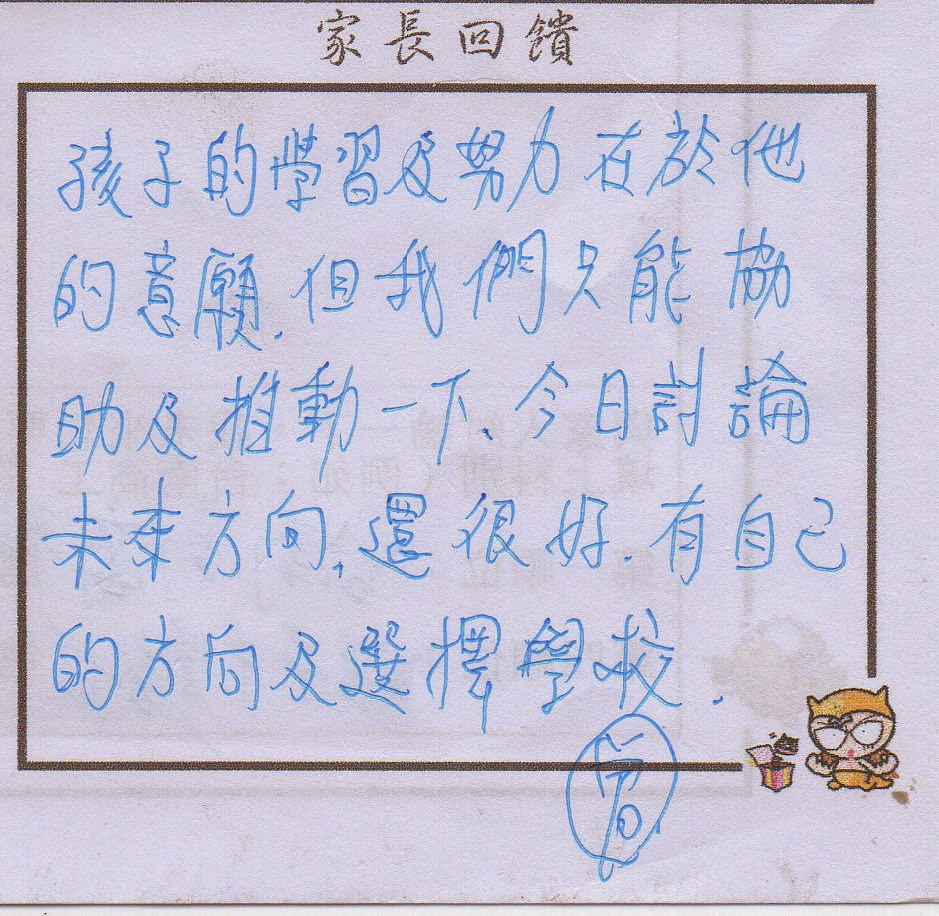 家長回饋
孩子的學習及努力在於他
的意願.但我們只能協
助及推動一下、今日討論
未來方向,還很好.有自己
的方向及選擇學校.